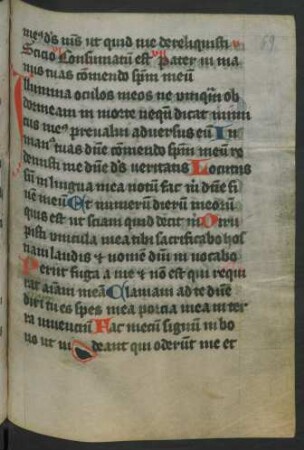 69
meꝰ dꝰ mꝰ ut quid me dereliquisti v
Sicio vi Consumatū est vii Pater in ma
nus tuas cōmendo spm̄ meū
Illumina oculos meos ne unq̄m ob
dormeam in morte neqn̄ dicat inimi
cus meꝰ preualui aduersus eū In
manꝰ tuas dn̄e cōmendo spm̄ meū re
demisti me dn̄e dꝰ veritatis Locutus
sū in lingua mea notū fac m̄ dn̄e fi
nē meū Et numerū dierū meorū
quis est ut sciam quid desit m̄ Diru
pisti vincula mea tibi sacrificabo hos
tiam laudis & nomē dn̄i inuocabo
Perijt fuga a me & nō est qui requi
rat aīam meā Clamaui ad te dn̄e
dixi tu es spes mea porcia mea in ter
ra viuenciū Fac mecū signū in bo
no ut vi deant qui oderūt me et